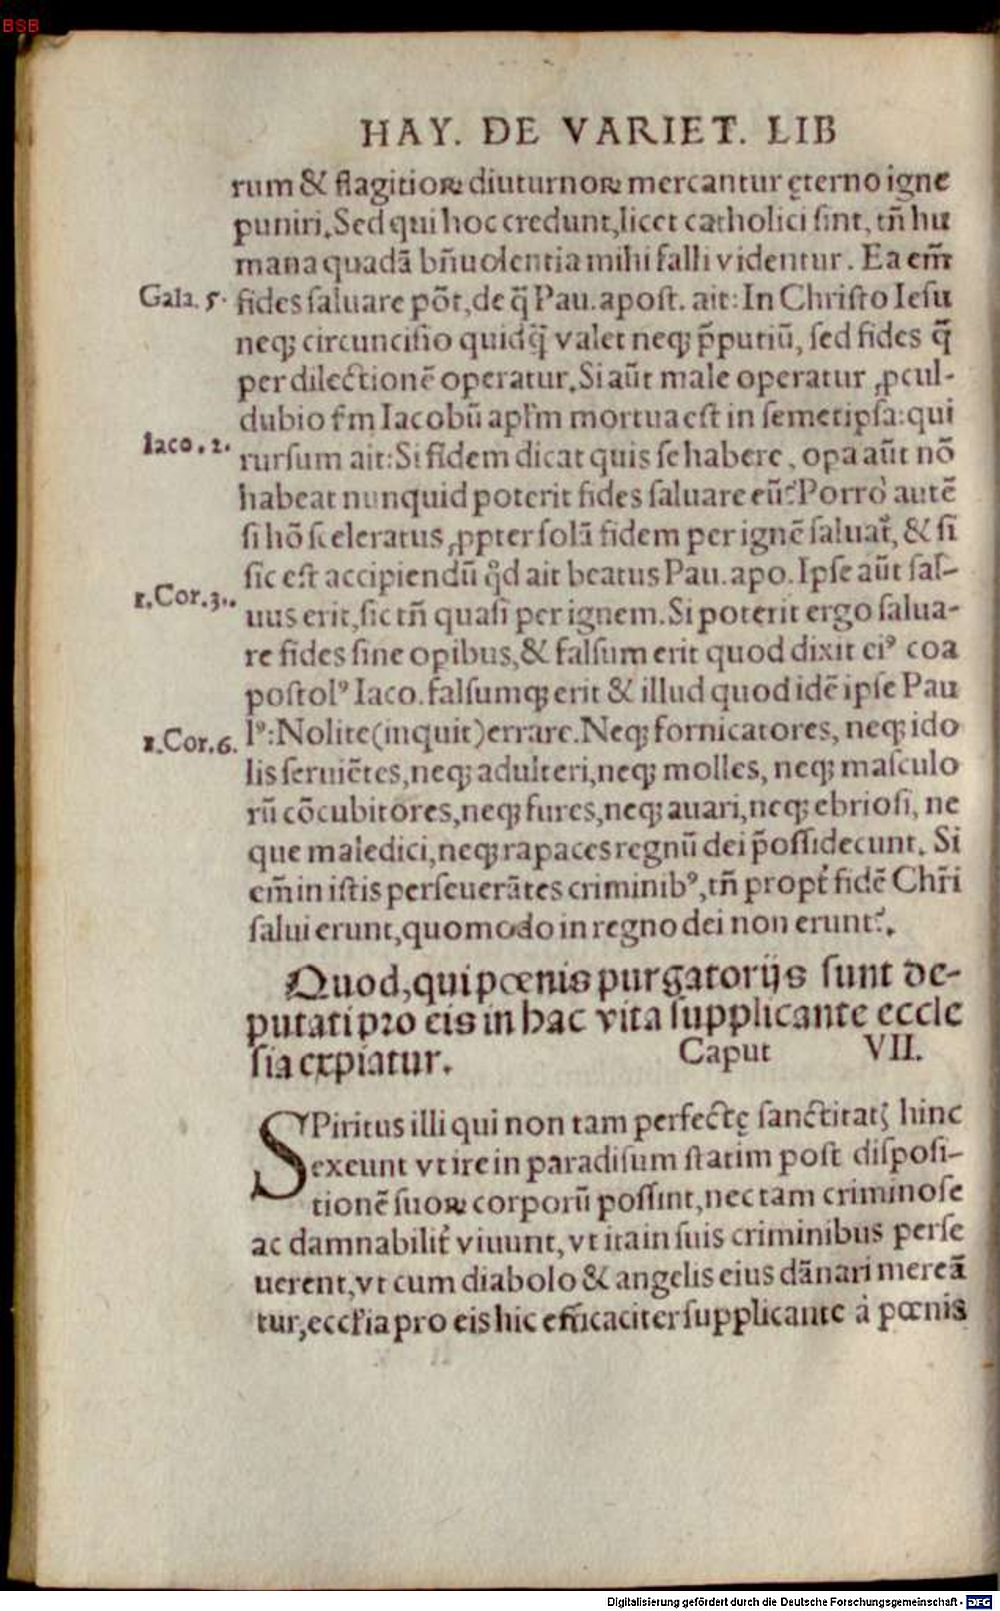 BSB
HAY. DE VARIET. LIB
rum & flagitioꝝ diuturnoꝝ mercantur ęterno igne
puniri. Sed qui hoc credunt, licet catholici sint, tñ hu
mana quadã bñuolentia mihi falli videntur. Ea em̃
Gala. 5. fides saluare põt, de q̃ Pau. apost. ait: In Christo Iesu
neqꝫ circuncisio quidq̃ valet neqꝫ p̃putiũ, sed fides q̃
per dilectionẽ operatur. Si aũt male operatur ꝓcul-
dubio ſm Iacobũ apl'm mortua est in semetipsa: qui
Iaco. 2. rursum ait: Si fidem dicat quis se habere, opa aũt nõ
habeat nunquid poterit fides saluare eũ? Porrò autẽ
si hõ sceleratus ꝓpter solã fidem per ignẽ saluat̃, & si
sic est accipiendũ qd̓ ait beatus Pau. apo. Ipse aũt sal-
1. Cor. 3. uus erit, sic tñ quasi per ignem. Si poterit ergo salua-
re fides sine opibus, & falsum erit quod dixit eiꝰ coa
postolꝰ Iaco. falsumqꝫ erit & illud quod idẽ ipse Pau
1. Cor. 6. lꝰ: Nolite (inquit) errare. Neqꝫ fornicatores, neqꝫ ido
lis seruiẽtes, neqꝫ adulteri, neqꝫ molles, neqꝫ masculo
rũ cõcubitores, neqꝫ fures, neqꝫ auari, neqꝫ ebriosi, ne
que maledici, neqꝫ rapaces regnũ dei p̃ossidecunt. Si
em̃ in istis perseuerãtes criminibꝰ, tñ propt̃ fidẽ Chr̃i
salui erunt, quomodo in regno dei non erunt?.
Quod, qui pœnis purgatorijs sunt de-
putati pro eis in hac vita supplicante eccle
sia expiatur. Caput VII.
SPiritus illi qui non tam perfectę sanctitatꝭ hinc
exeunt vt ire in paradisum statim post disposi-
tionẽ suoꝝ corporũ possint, nec tam criminose
ac damnabilit̃ viuunt, vt ita in suis criminibus perse
uerent, vt cum diabolo & angelis eius dãnari mereã
tur, eccl'ia pro eis hic efficaciter supplicante à pœnis
Digitalisierung gefördert durch die Deutsche Forschungsgemeinschaft - DFG